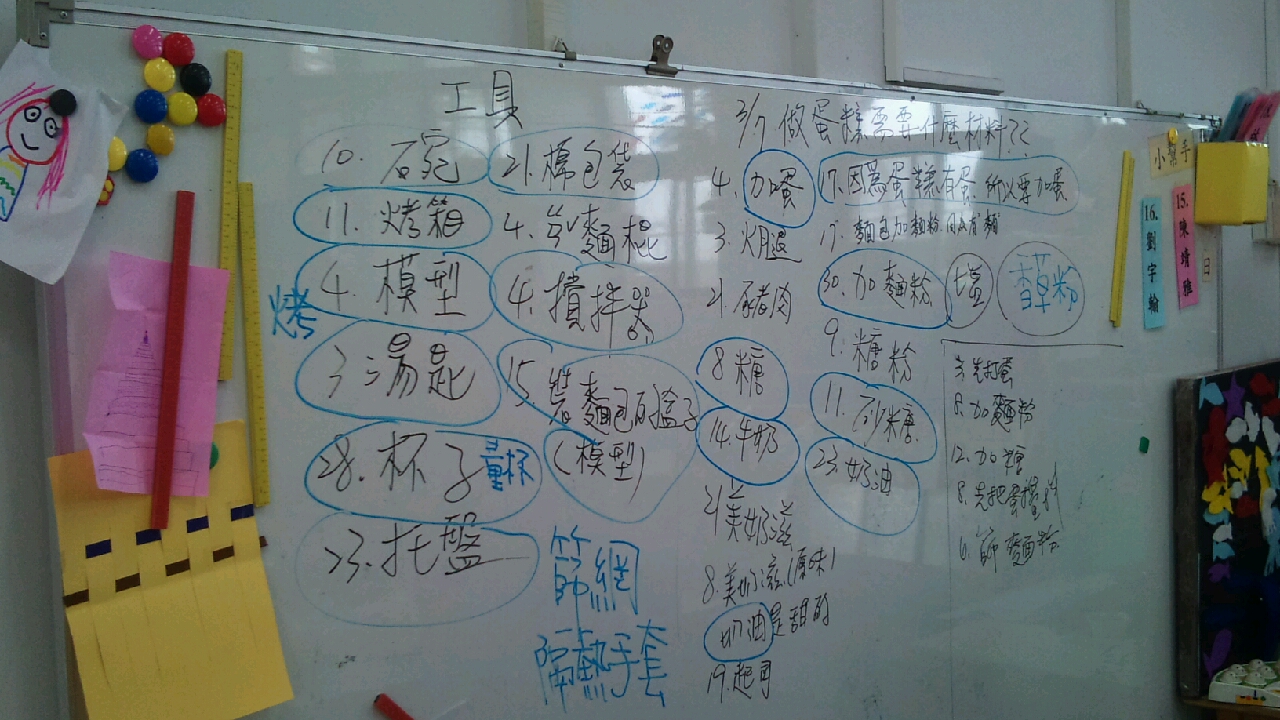 工具
10. 碗
11. 烤箱
烤
4. 模型
3 湯匙
28. 杯子 量杯
23. 托盤
21. 棉包袋
4. 麵棍
4. 攪拌器
15. 裝麵包的盒子
(模型)
篩網
隔熱手套
3/7 做蛋糕需要什麼材料??
4. 加蛋
17. 因為蛋糕有蛋 所以要加蛋
3. 火腿
17. 麵包加麵粉
21. 豬肉
30. 加麵粉
鹽
香草粉
8. 糖
9. 糖粉
14. 牛奶
11. 砂糖
23. 奶油
21 美奶滋
8. 美奶滋(原味)
奶油是甜的
19. 起司
3. 先打蛋
8. 加麵粉
12. 加糖
8. 先把蛋攪拌
6. 篩麵粉
小幫手
16. 劉宇翰
15. 陳靖雅
日